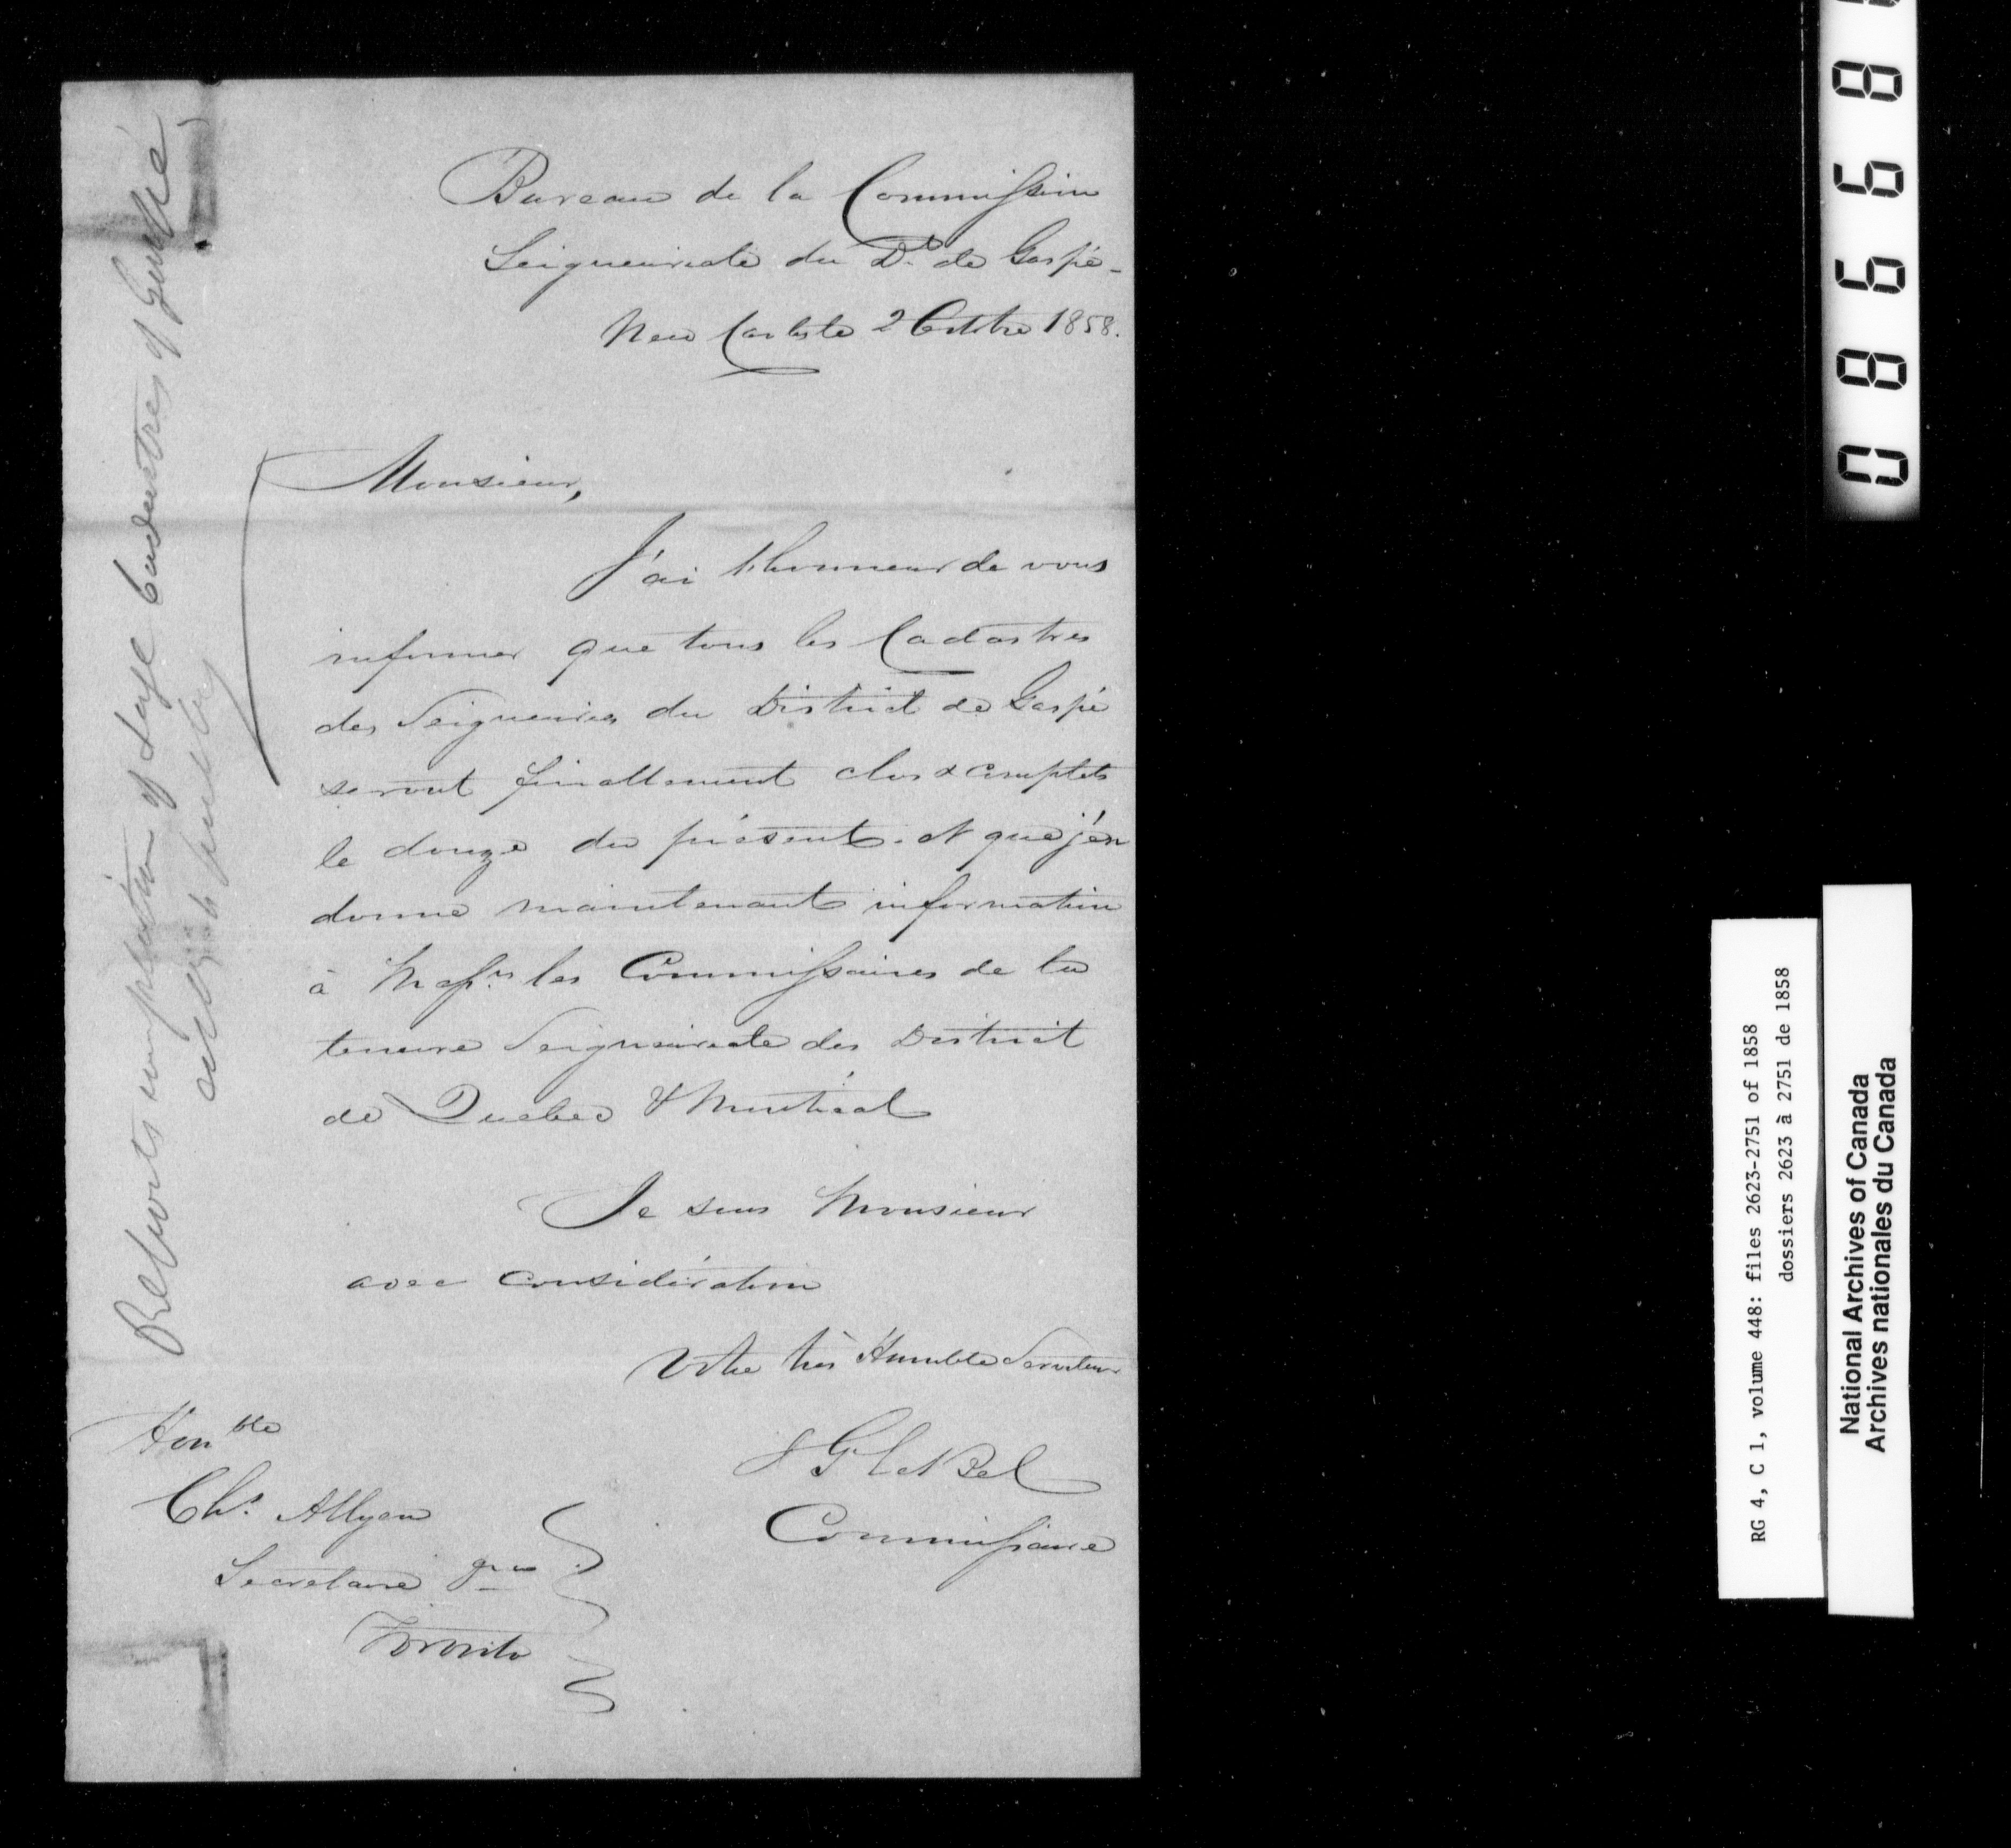 Bureau de la Commission
Seigneuriale du Dt. de Gaspé-
New Carlisle 2 Octobre 1858.
Monsieur,
J'ai l'honneur de vous
informer que tous les Cadastres
des Seigneuries du District de Gaspé
seront finallement clos & complets
le douze du présent. et que j'en
donne maintenant information
à Messrs. les Commissaires de la
tenure Seigneuriale des District
de Quebec & Montréal
Je suis Monsieur
avec considération
Votre très Humble Serviteur
J G LeBel
Commissaire
Honble
Chs. Alleyn
Secretaire
Toronto
Reports completion of Seigl Cadastres of Gaspé
0866
RG 4, C 1, volume 448: files 2623-2751 of 1858
dossiers 2623 à 2751 de 1858
National Archives of Canada
Archives nationales du Canada